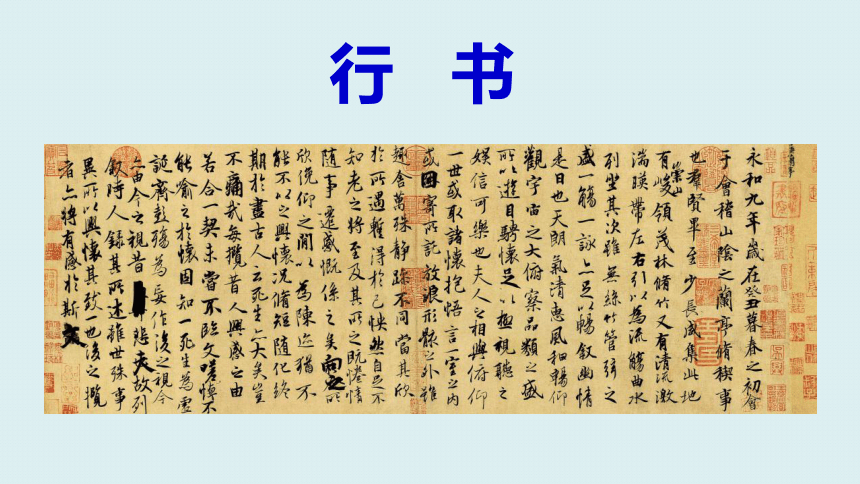 行 书
永和九年歲在癸丑暮春之初會
于會稽山陰之蘭亭脩稧事
也羣賢畢至少長咸集此地
有崇山峻領茂林脩竹又有清流激
湍暎帶左右引以為流觴曲水
列坐其次雖無絲竹管弦之
盛一觴一詠亦足以暢敘幽情
是日也天朗氣清惠風和暢仰
觀宇宙之大俯察品類之盛
所以遊目騁懷足以極視聽之
娛信可樂也夫人之相與俯仰
一世或取諸懷抱悟言一室之內
或因寄所託放浪形骸之外雖
趣舍萬殊靜躁不同當其欣
於所遇蹔得於己怏然自足不
知老之將至及其所之既惓情
隨事遷感慨係之矣向之所
欣俛仰之閒以為陳迹猶不
能不以之興懷況脩短隨化終
期於盡古人云死生亦大矣豈
不痛哉每攬昔人興感之由
若合一契未嘗不臨文嗟悼不
能喻之於懷固知一死生為虛
誕齊彭殤為妄作後之視今
亦由今之視昔悲夫故列
敘時人錄其所述雖世殊事
異所以興懷其致一也後之攬
者亦將有感於斯文